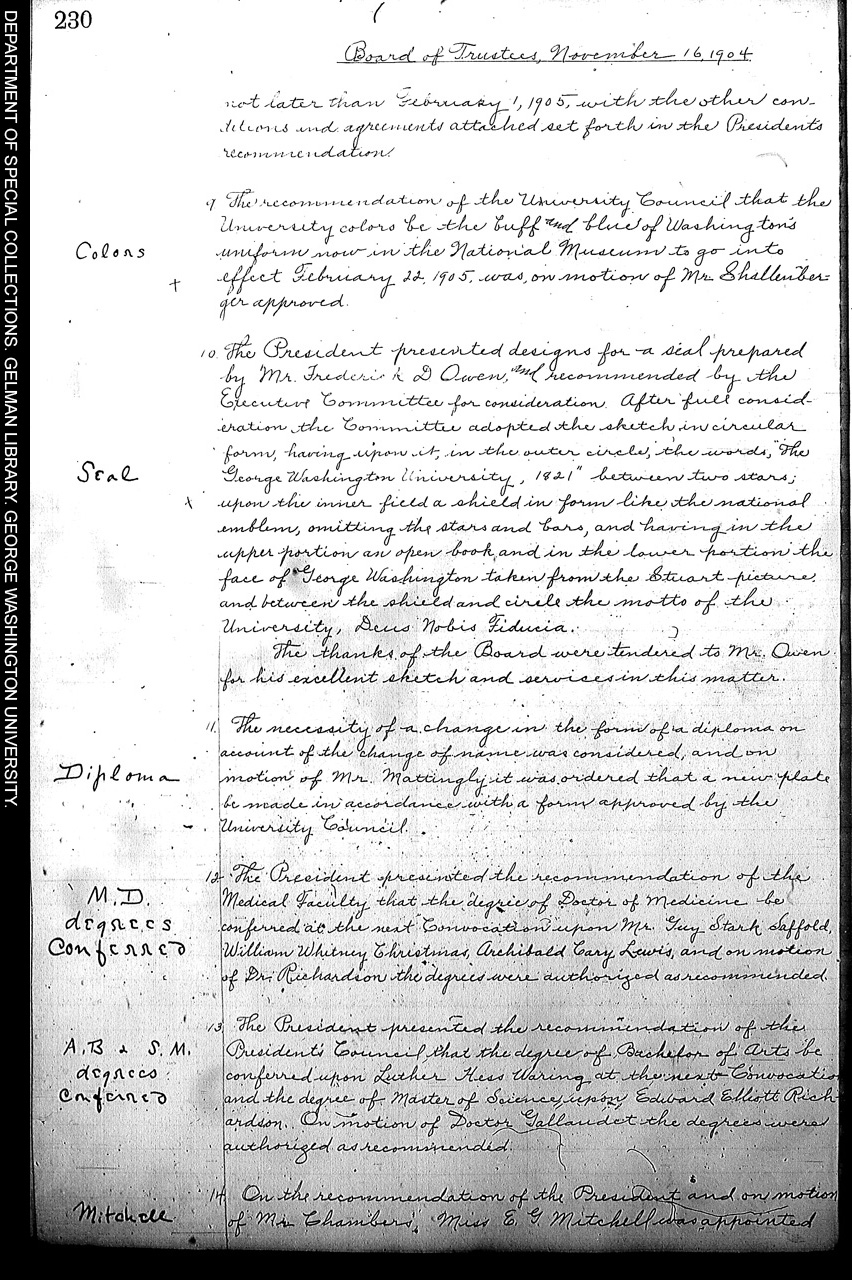 230
Board of Trustees, November 16, 1904
not later than February 1, 1905, with the other con-
ditions and agreements attached set forth in the Presidents
recommendation.
9 The recommendation of the University Council that the
University colors be the buff and blue of Washington's
Colors
uniform now in the National Museum to go into
effect February 22, 1905, was, on motion of Mr. Shallenber-
ger approved.
10. The President presented designs for a seal prepared
by Mr. Frederick D Owen, and recommended by the
Executive Committee for consideration. After full consid-
eration the Committee adopted the sketch in circular
form, having upon it, in the outer circle, the words, "The
Seal
George Washington University, 1821" between two stars;
upon the inner field a shield in form like the national
emblem, omitting the stars and bars, and having in the
upper portion an open book, and in the lower portion the
face of George Washington taken from the Stuart picture,
and between the shield and circle the motto of the
University, Deus Nobis Fiducia.
The thanks of the Board were tendered to Mr. Owen
for his excellent sketch and services in this matter.
11. The necessity of a change in the form of a diploma on
account of the change of name was considered, and on
Diploma
motion of Mr. Mattingly it was ordered that a new plate
be made in accordance with a form approved by the
University Council.
12 The President presented the recommendation of the
Medical Faculty that the degree of Doctor of Medicine be
M.D.
degrees
Conferred
conferred at the next Convocation upon Mr. Guy Stark Saffold,
William Whitney Christmas, Archibald Cary Lewis, and on motion
of Dr. Richardson the degrees were authorized as recommended.
13 The President presented the recommendation of the
President's Council that the degree of Bachelor of Arts be
A.B & S.M.
degrees
Conferred
conferred upon Luther Hess Waring at the next Convocation
and the degree of Master of Science upon Edward Elliott Rich-
ardson. On motion of Doctor Gallaudet the degrees were
authorized as recommended.
14 On the recommendation of the President and on motion
Mitchell
of Mr. Chambers, Miss E. G. Mitchell was appointed
DEPARTMENT OF SPECIAL COLLECTIONS. GELMAN LIBRARY. GEORGE WASHINGTON UNIVERSITY.